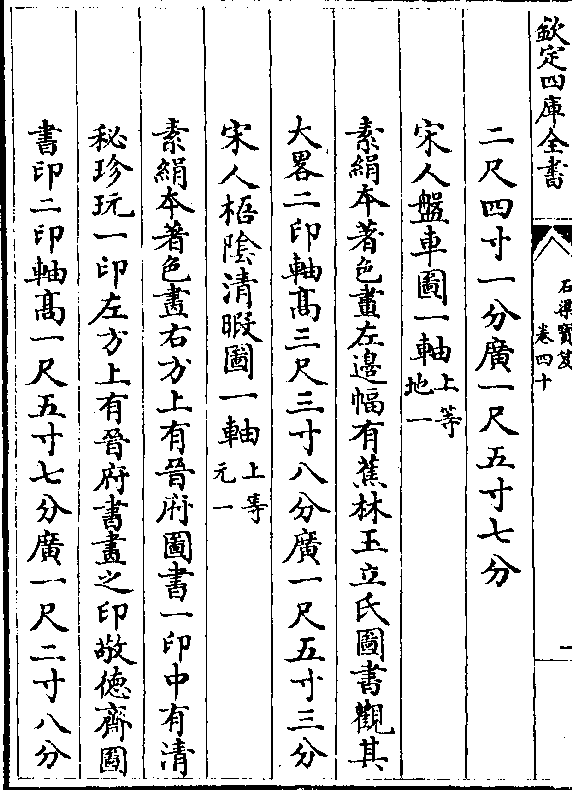 欽定四庫全書
石渠寶笈
卷四十
一
二尺四寸一分廣一尺五寸七分
宋人盤車圖一軸上等地一
素絹本著色畫左邊幅有蕉林玉立氏圖書觀其
大畧二印軸髙三尺三寸八分廣一尺五寸三分
宋人梧陰清暇圖一軸上等元一
素絹本著色畫右方上有晉府圖書一印中有清
秘珍玩一印左方上有晉府書畫之印敬徳齋圖
書印二印軸髙一尺五寸七分廣一尺二寸八分